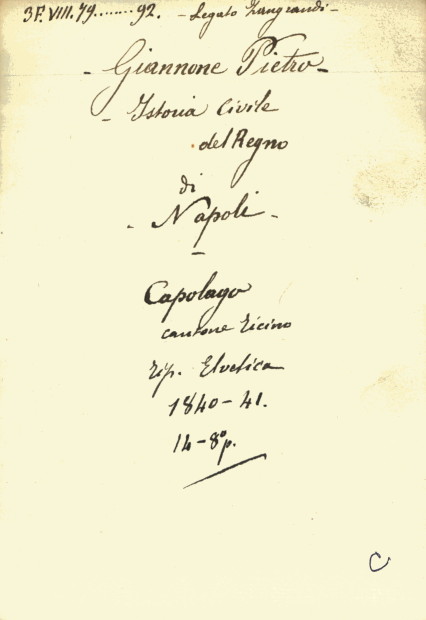 3F. VIIII. 79........92. - Legato Zangrandi -
- Giannone Pietro -
- Istoria Civile
del Regno
di
- Napoli -
Capolago
cantone Ticino
Tip. Elvetica
1840-41.
14-8°p.
C